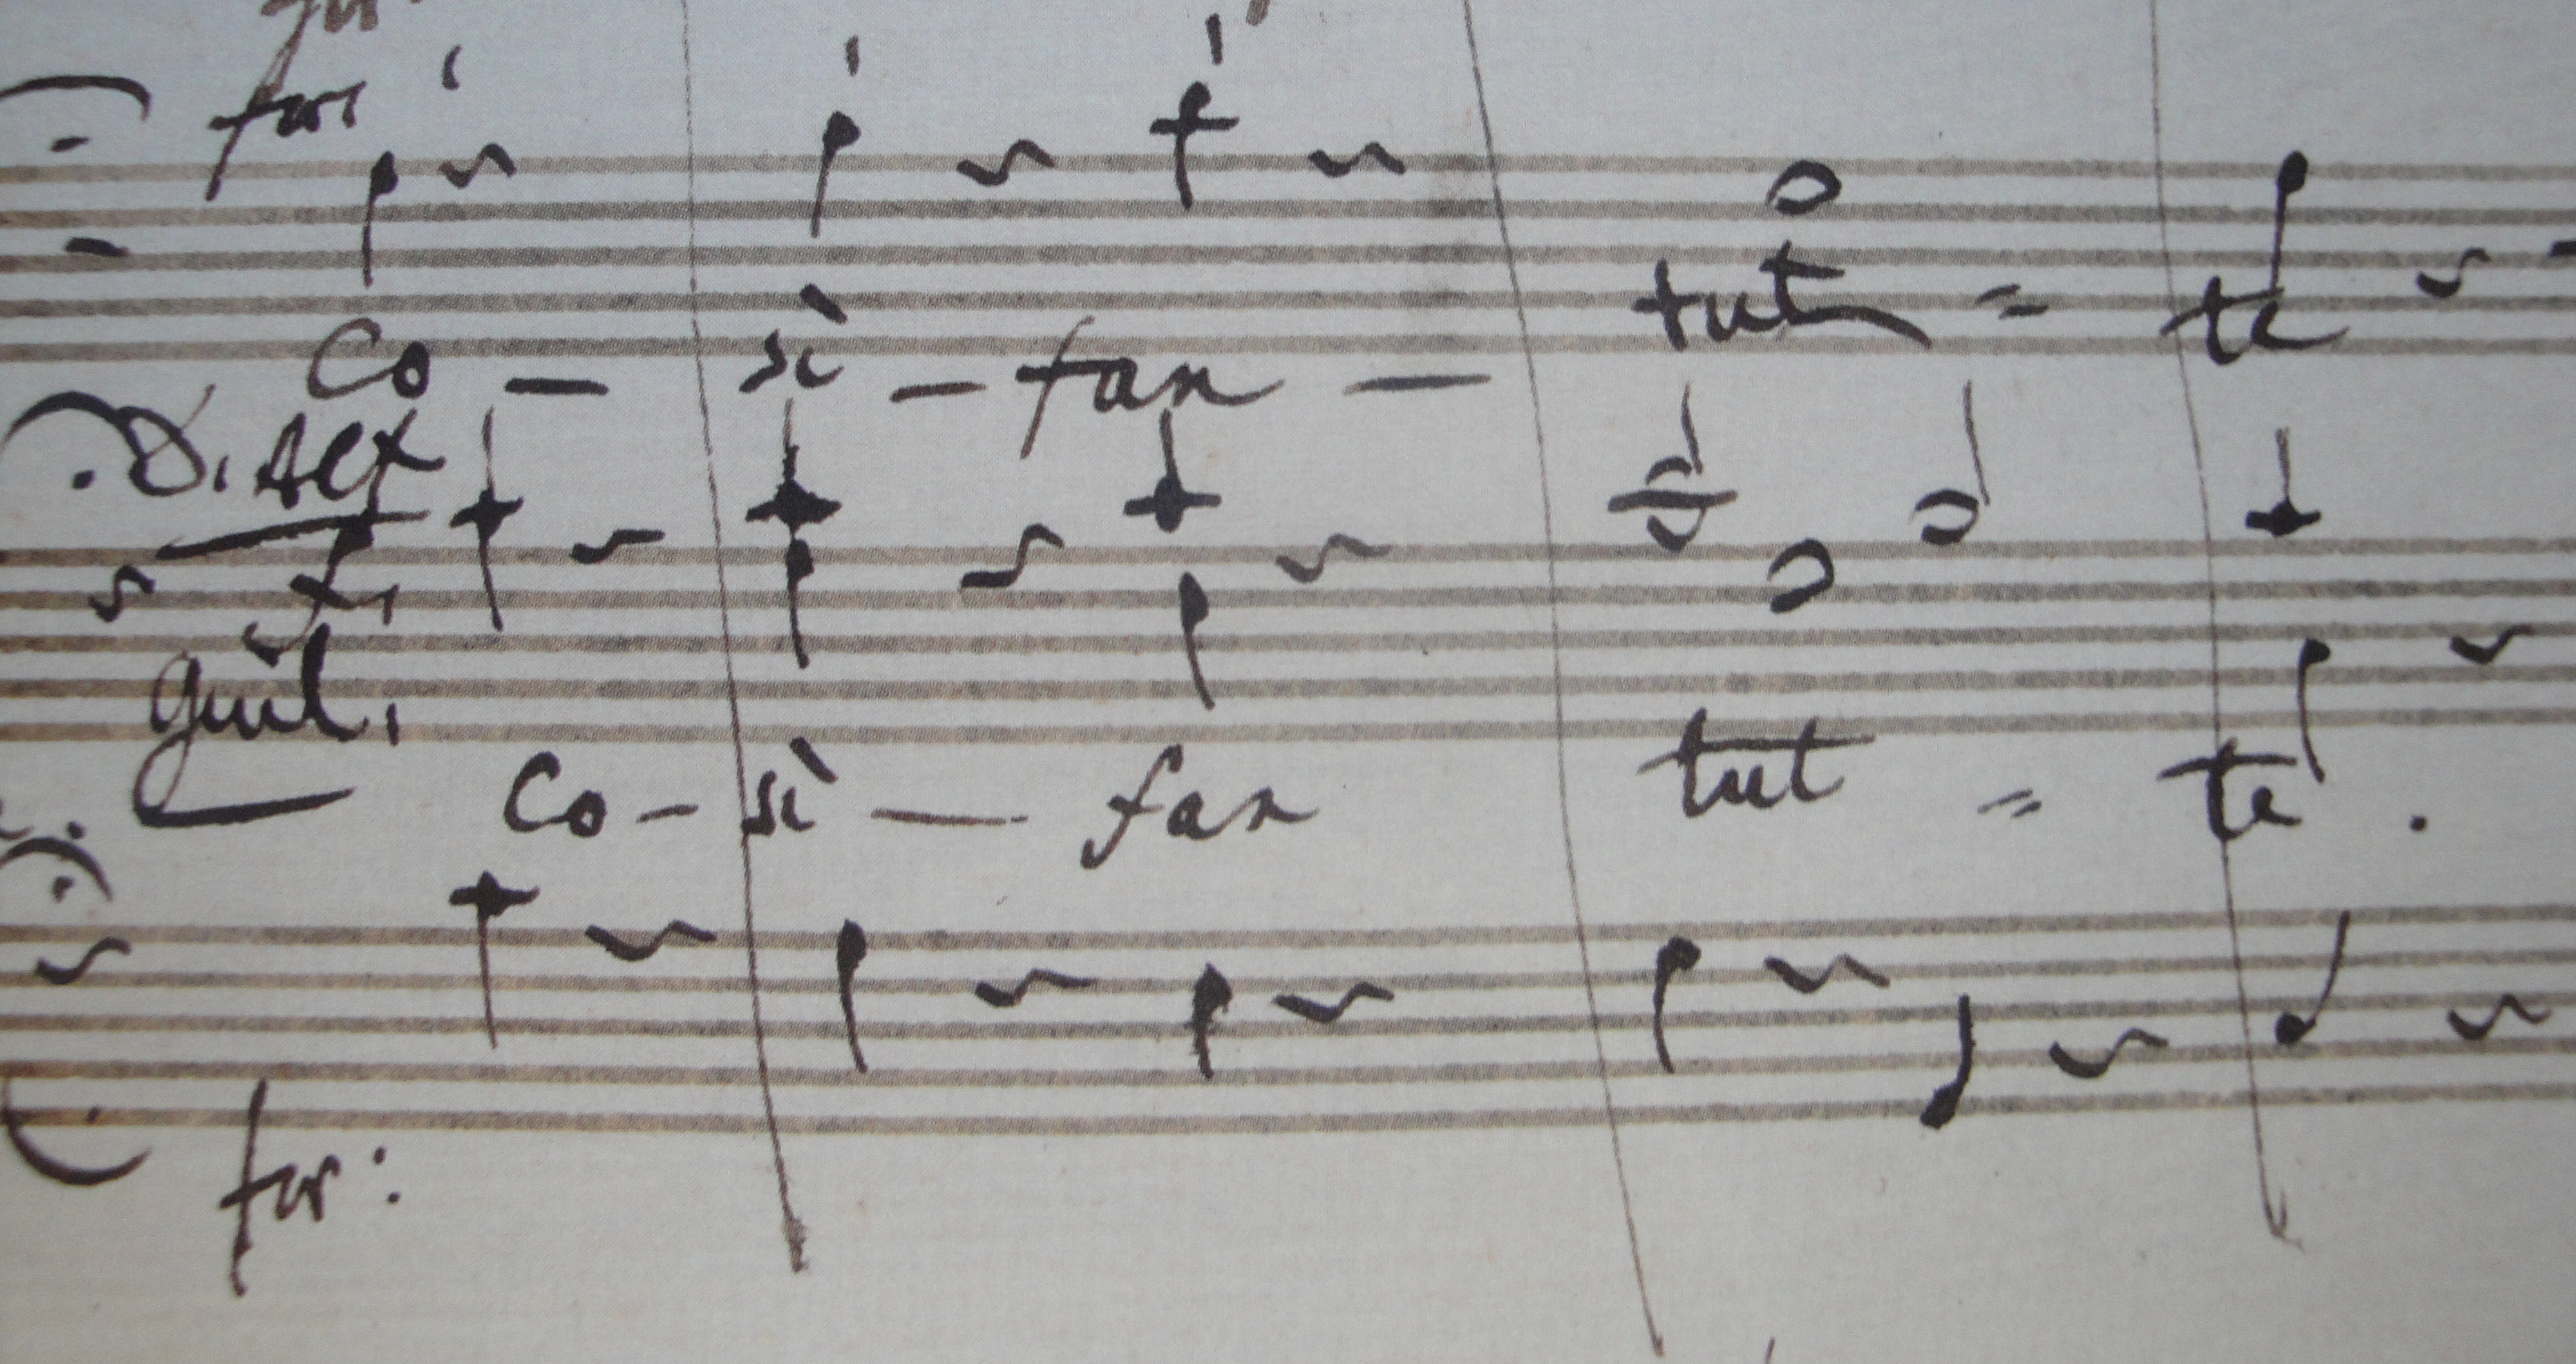 for:
Co - sì - fan - tut = te
D. Alf
f:
guil.
Co - sì - fan tut = te.
for: